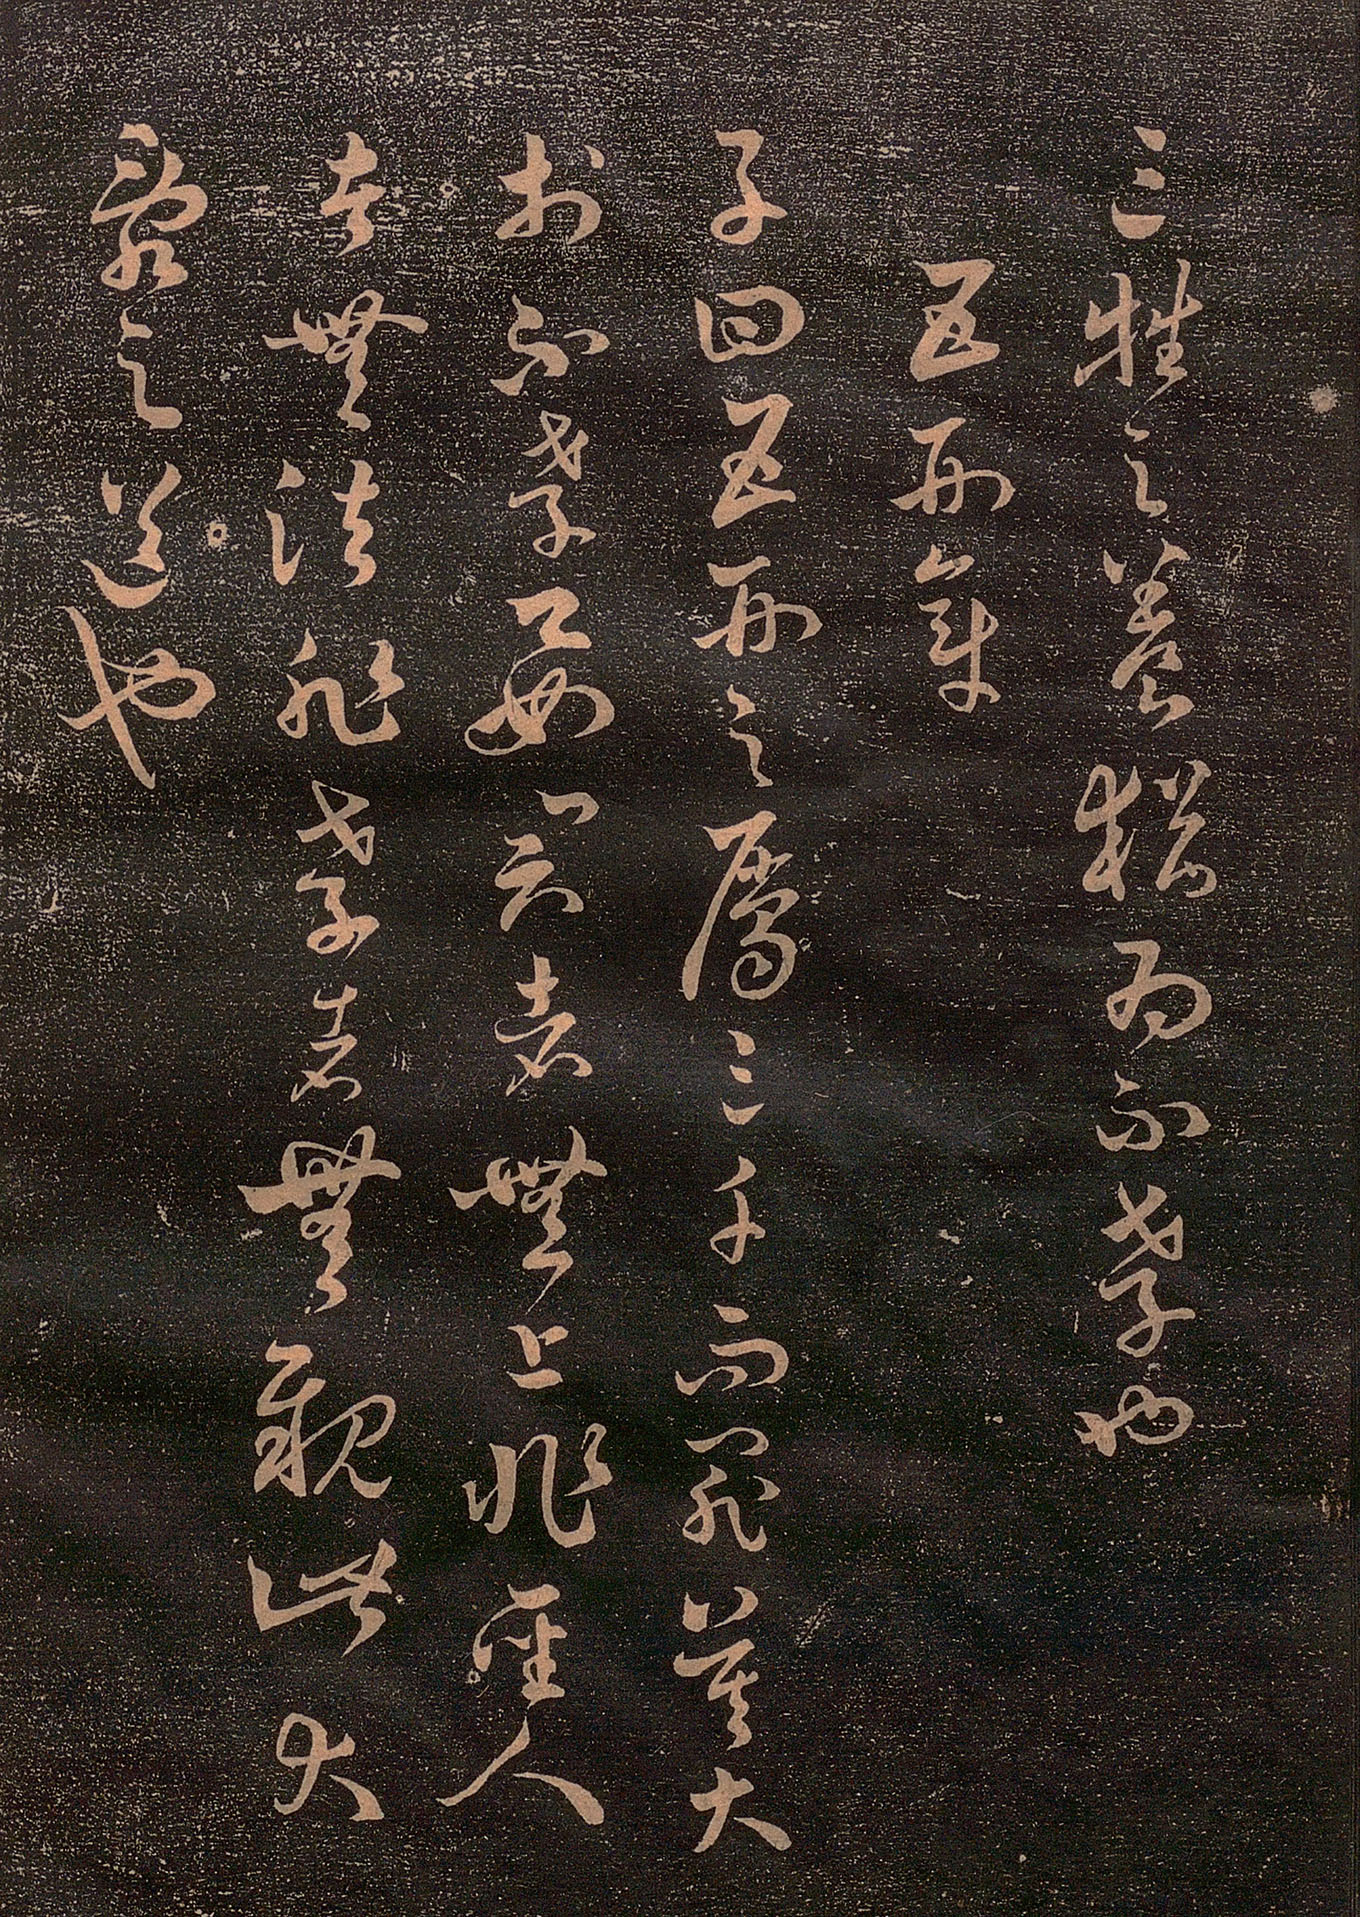 三牲之養猶為不孝也
五刑章
子曰五刑之屬三千而罪莫大
於不孝要君者無上非聖人
者無法非孝者無親此大
亂之道也